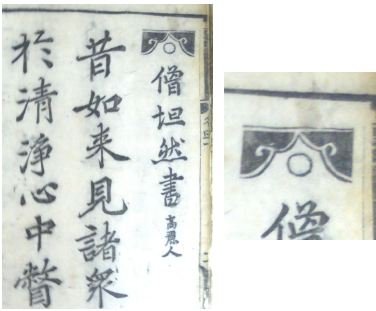 僧坦然書 高麗人
昔如来見諸衆
於清淨心中瞥
僧